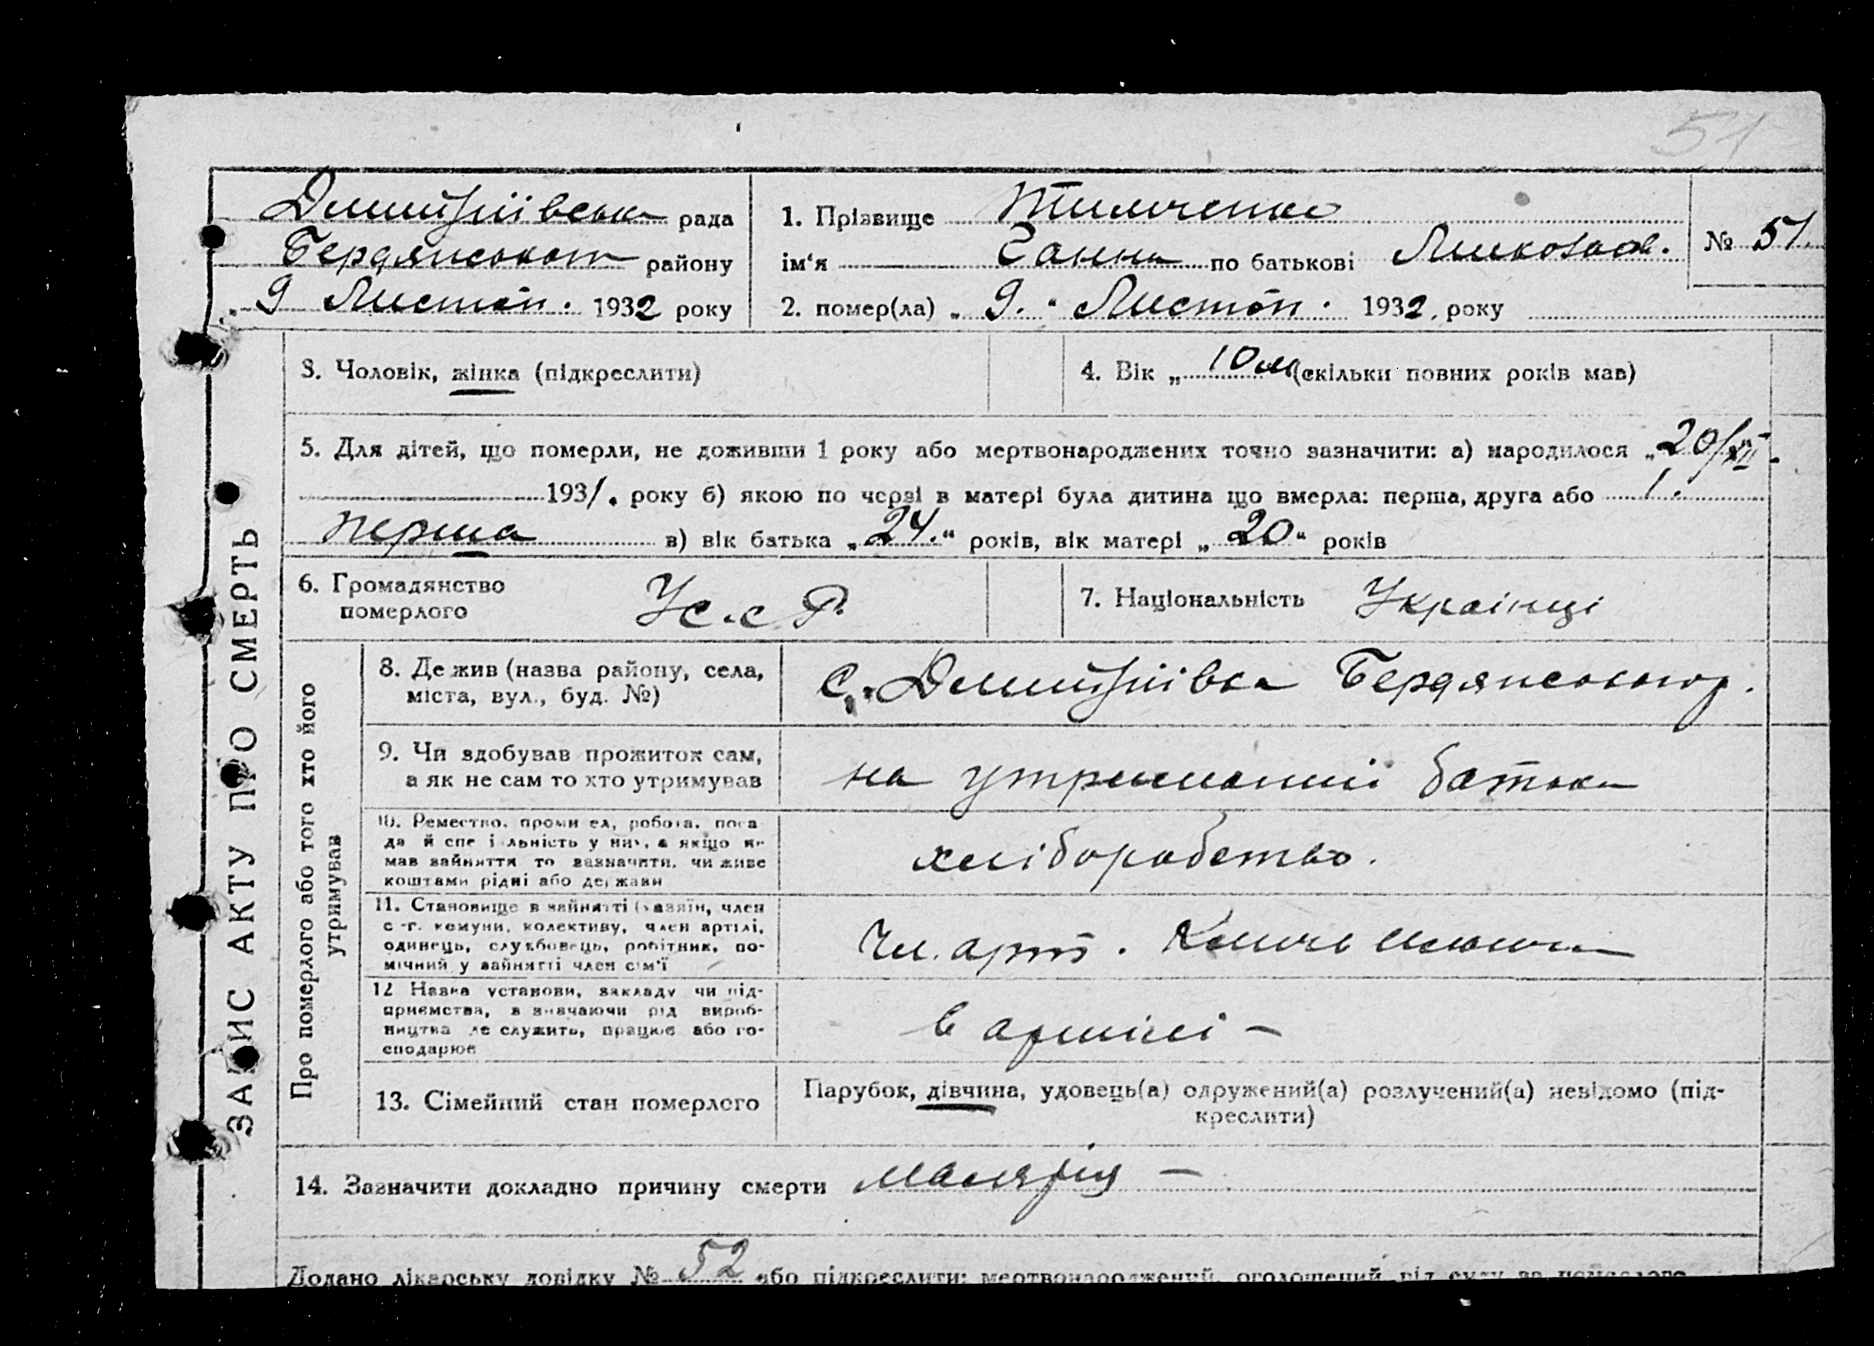 51
Дмитріївська рада
Бердянського району
„ 9 Листоп. 1932 року
1. Прізвище Тимченко
ім‘я Ганна по батькові Миколаєв.
2. помер(ла) „ 9. “ Листоп. 1932. року
№ 51.
3. Чоловік, жінка (підкреслити)
4. Вік „ 10 м (скільки повних років мав)
5. Для дітей, що померли, не доживши 1 року або мертвонароджених точно зазначити: а) народилося „20/XII
1931. року б) якою по черзі в матері була дитина що вмерла: перша, друга або 1.
перша в) вік батька „24.“ років, вік матері „20“ років
6. Громадянство
померлого
У.с.с.Р.
7. Національність Українці
ЗАПИС АКТУ ПРО СМЕРТЬ
Про померлого або того хто його
утримував
8. Де жив (назва району, села,
міста, вул., буд. №)
с. Дмитріївка Бердянського р.
9. Чи здобував прожиток сам,
а як не сам то хто утримував
на утриманні батька
10. Ремество, промисел, робота, поса-
да й спеціяльність у них, а якщо не
мав зайняття то зазначити, чи живе
коштами рідні або держави
хліборобство.
11. Становище в зайнятті (хазяїн, член
с.-г. комуни, колективу, член артілі,
одинець, службовець, робітник, по-
мічний у зайнятті член сім‘ї
Чл. арт.
12 Назва установи, закладу чи під-
приємства, зазначаючи рід вироб-
ництва де служить, працює або го-
сподарює
в артілі –
13. Сімейний стан померлого
Парубок, дівчина, удовець(а) одружений(а) розлучений(а) невідомо (під-
креслити)
14. Зазначити докладно причину смерти малярія –
Додано лікарську довідку № 52 або підкреслити: мертвонароджений, оголошений від суду за померлого